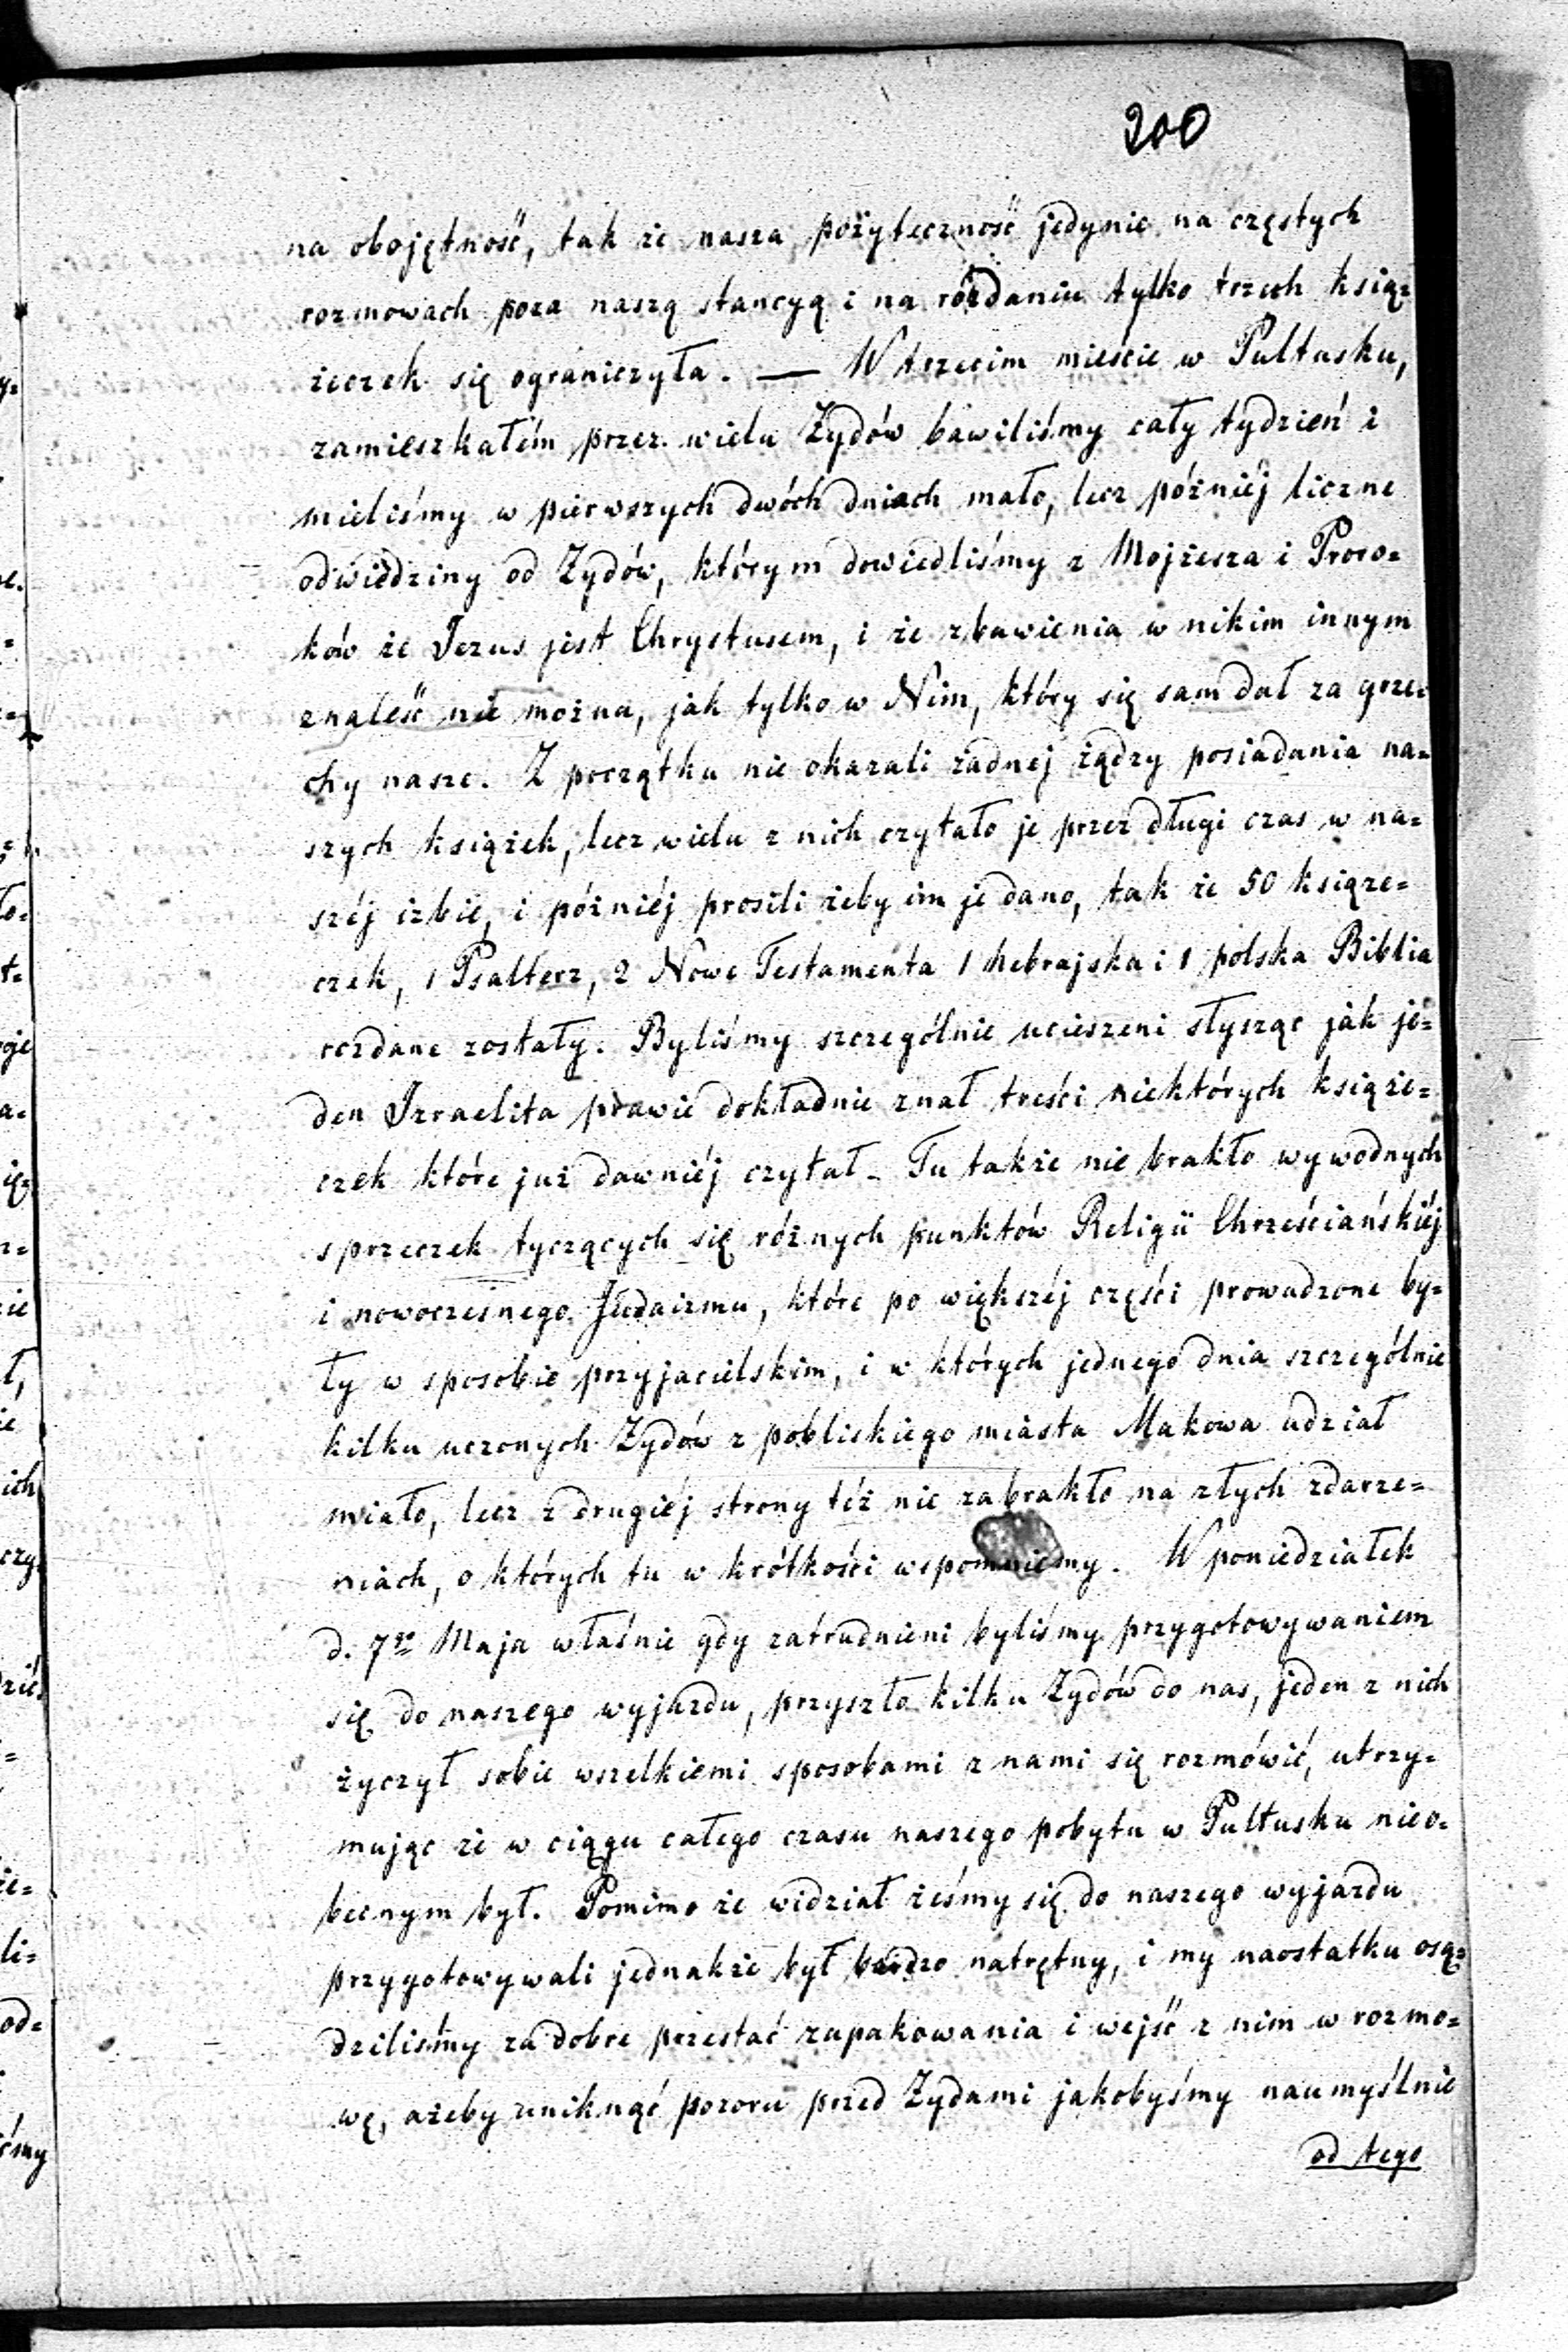 200
na obojętność, tak że nasza pożyteczność jedynie na częstych
rozmowach poza naszą stancyą i na rozdaniu tylko trzech ksią=
żeczek się ograniczyła. — W trzecim mieście w Pułtusku,
zamieszkałém przez wielu Żydów bawiliśmy cały tydzień i
mieliśmy w pierwszych dwóch dniach mało, lecz późniéj liczne
odwiedziny od Żydów, którym dowiedliśmy z Mojżesza i Proro=
ków że Jezus jest Chrystusem, i że zbawienia w nikim innym
znaleść nie można, jak tylko w Nim, który się sam dał za grze=
chy nasze. Z początku nie okazali żadnej żądzy posiadania na=
szych książek, lecz wielu z nich czytało je przez długi czas w na=
széj izbie, i późniéj prosili żeby im je dano, tak że 50 książe=
czek, 1 Psałterz, 2 Nowe Testamenta 1 hebrajska i 1 polska Biblia
rozdane zostały. Byliśmy szczególnie ucieszeni słysząc jak je=
den Izraelita prawie dokładnie znał treści niektórych książe=
czek które już dawniéj czytał. Tu także nie brakło wywodnych
sprzeczek tyczących się różnych punktów Religii Chrześciańskiéj
i nowoczesnego Judaizmu, które po większéj części prowadzone by=
ły w sposobie przyjacielskim, i w których jednego dnia szczególnie
kilku uczonych Żydów z pobliskiego miasta Makowa udział
miało, lecz z drugiéj strony téż nie zabrakło na złych zdarze=
niach, o których tu w krótkości wspomniemy. W poniedziałek
d. 7go Maja właśnie gdy zatrudnieni byliśmy przygotowywaniem
się do naszego wyjazdu, przyszło kilku Żydów do nas, jeden z nich
życzył sobie wszelkiemi sposobami z nami się rozmówić, utrzy=
mując że w ciągu całego czasu naszego pobytu w Pułtusku nieo=
becnym był. Pomimo że widział żeśmy się do naszego wyjazdu
przygotowywali jednakże był bardzo natrętny, i my naostatku osą=
dziliśmy za dobre przestać zapakowania i wejść z nim w rozmo=
wę, ażeby uniknąć pozoru przed Żydami jakobyśmy naumyślnie
od tego